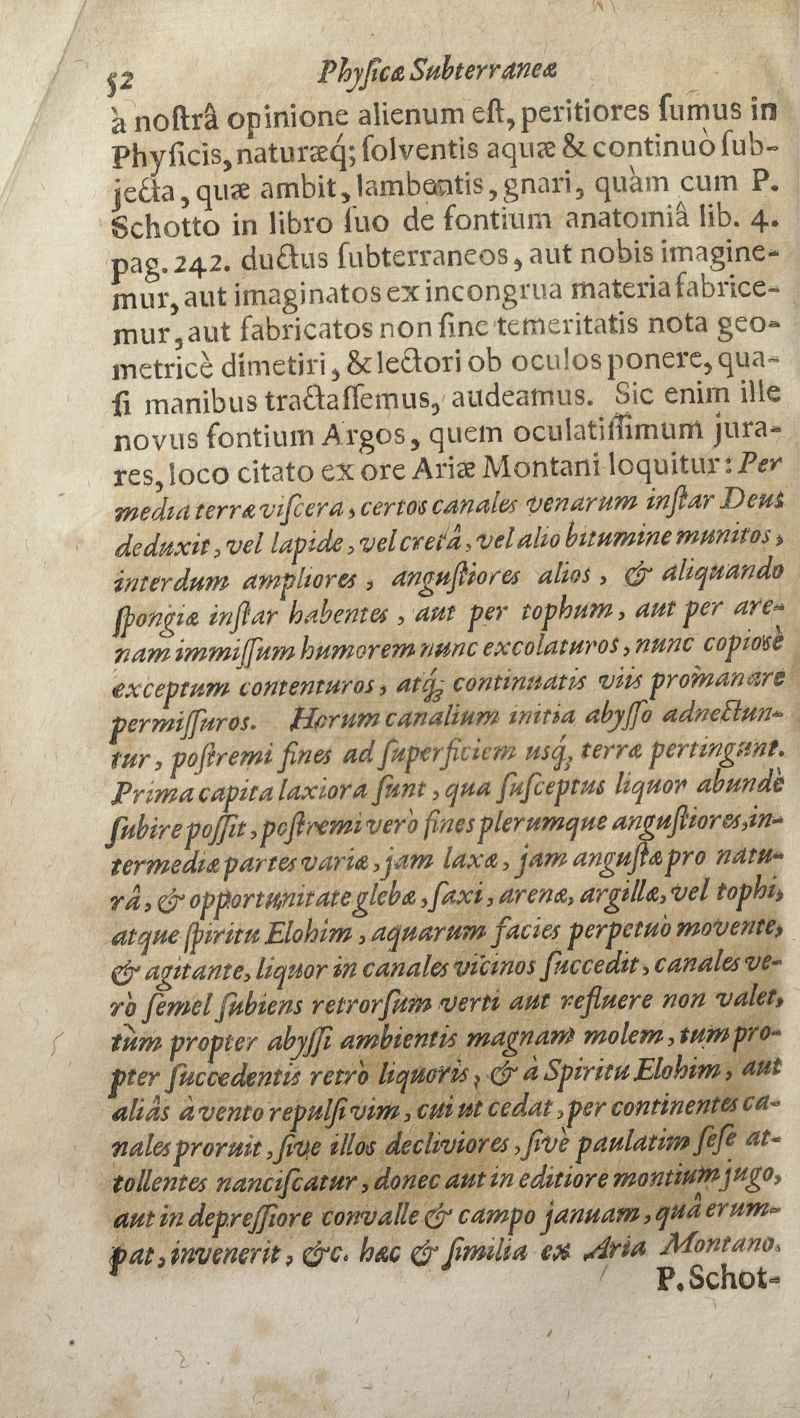 52 Phyſicæ Subterraneæ
à noſtrâ opinione alienum eſt, peritiores ſumus in
Phyſicis, naturæq́; ſolventis aquæ & continuò ſub-
jecta, quæ ambit, lambentis, gnari, quàm cum P.
Schotto in libro ſuo de fontium anatomiâ lib. 4.
pag. 242. ductus ſubterraneos, aut nobis imagine-
mur, aut imaginatos ex incongrua materia fabrice-
mur, aut fabricatos non ſine temeritatis nota geo-
metricè dimetiri, & lectori ob oculos ponere, qua-
ſi manibus tractaſſemus, audeamus. Sic enim ille
novus fontium Argos, quem oculatiſſimum jura-
res, loco citato ex ore Ariæ Montani loquitur: Per
media terræ viſcera, certos canales venarum inſtar Deus
deduxit, vel lapide, vel cretâ, vel alio bitumine munitos,
interdum ampliores, anguſtiores alios, & aliquando
ſpongiæ inſtar habentes, aut per tophum, aut per are-
nam immiſſum humorem nunc excolaturos, nunc copiosè
exceptum contenturos, atq́; continuatis viis promanare
permiſſuros. Horum canalium initia abyſſo adnectun-
tur, poſtremi fines ad ſuperficiem usq́; terræ pertingunt.
Prima capita laxiora ſunt, qua ſuſceptus liquor abundè
ſubire poſſit, poſtremi verò fines plerumque anguſtiores, in-
termediæ partes variæ, jam laxæ, jam anguſtæ pro natu-
râ, & opportunitate glebæ, ſaxi, arenæ, argillæ, vel tophi,
atque ſpiritu Elohim, aquarum facies perpetuò movente,
& agitante, liquor in canales vicinos ſuccedit, canales ve-
rò ſemel ſubiens retrorſum verti aut refluere non valet,
tùm propter abyſſi ambientis magnam molem, tum pro-
pter ſuccedentis retrò liquoris, & à Spiritu Elohim, aut
aliàs à vento repulſi vim, cui ut cedat, per continentes ca-
nales proruit, ſive illos decliviores, ſivè paulatim ſeſe at-
tollentes nanciſcatur, donec aut in editiore montium jugo,
aut in depreſſiore convalle & campo januam, quâ erum-
pat, invenerit, &c. hæc & ſimilia ex Aria Montano.
P. Schot-